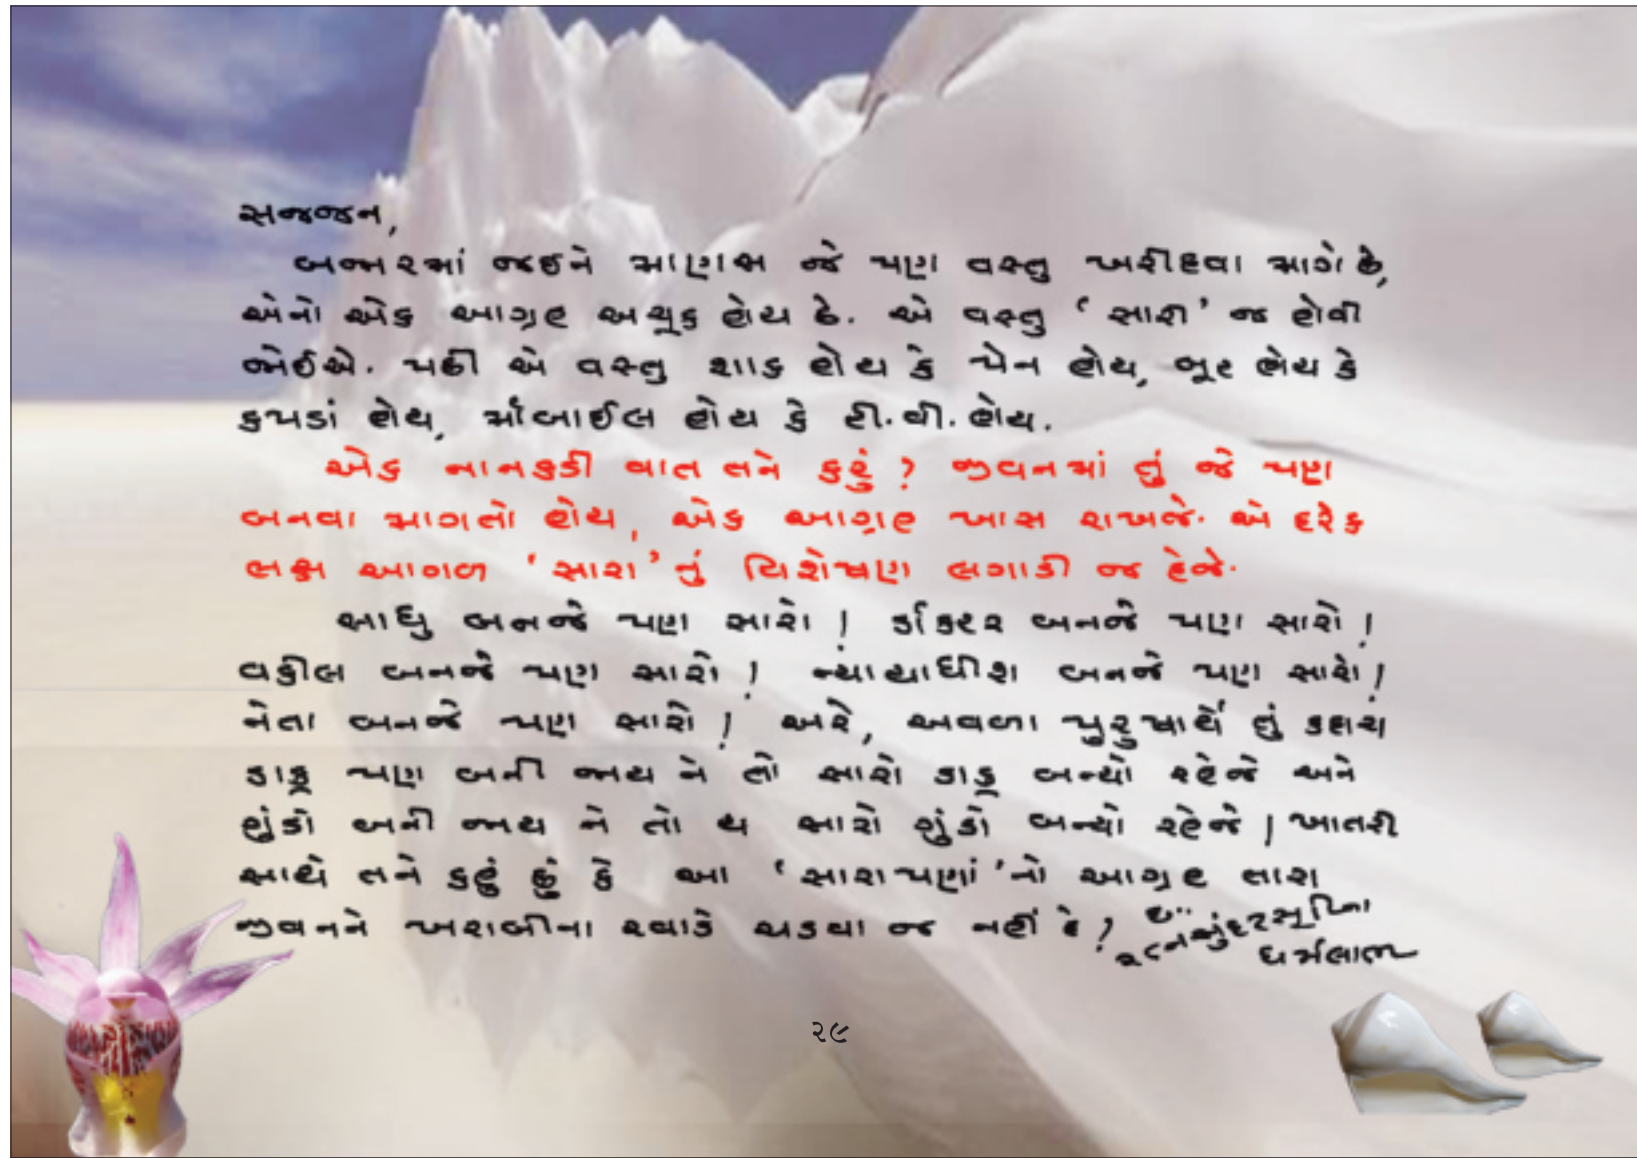 સજ્જન,
બજારમાં જઈને માણસ જે પણ વસ્તુ ખરીદવા માગે છે,
એનો એક આગ્રહ અચૂક હોય છે. એ વસ્તુ ‘સારી’ જ હોવી
જોઈએ. પછી એ વસ્તુ શાક હોય કે પેન હોય, બૂટ હોય કે
કપડાં હોય, મૉબાઈલ હોય કે ટી.વી. હોય.
એક નાનકડી વાત તને કહું ? જીવનમાં તું જે પણ
બનવા માગતો હોય, એક આગ્રહ ખાસ રાખજે. એ દરેક
લક્ષ્ય આગળ ‘સારા’નું વિશેષણ લગાડી જ દેજે.
સાધુ બનજે પણ સારો ! ડૉક્ટર બનજે પણ સારો !
વકીલ બનજે પણ સારો ! ન્યાયાધીશ બનજે પણ સારો !
નેતા બનજે પણ સારો ! અરે, અવળા પુરુષાર્થે તું કદાચ
ડાકૂ પણ બની જાય ને તો સારો ડાકૂ બન્યો રહેજે અને
ગુંડો બની જાય ને તો ય સારો ગુંડો બન્યો રહેજે ! ખાતરી
સાથે તને કહું છું કે આ ‘સારાપણાં’નો આગ્રહ તારા
જીવનને ખરાબીના રવાડે ચડવા જ નહીં દે ?
દઃ રત્નસુંદરસૂરિના
ધર્મલાભ
૨૯